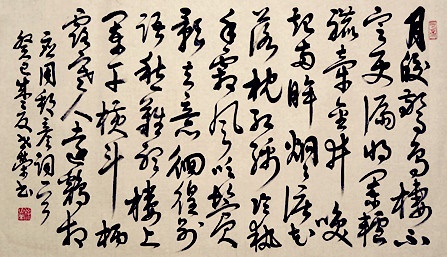 月皎驚烏棲不
定更漏將闌轆
轤牽金井喚
起兩眸炯炯淚花
落枕紅綿冷執
手霜風吹鬢
影去意徊徨別
語愁難聽樓上
闌干橫斗柄
露寒人遠鷄相
应周邦彦词一首
癸巳之夏榮书